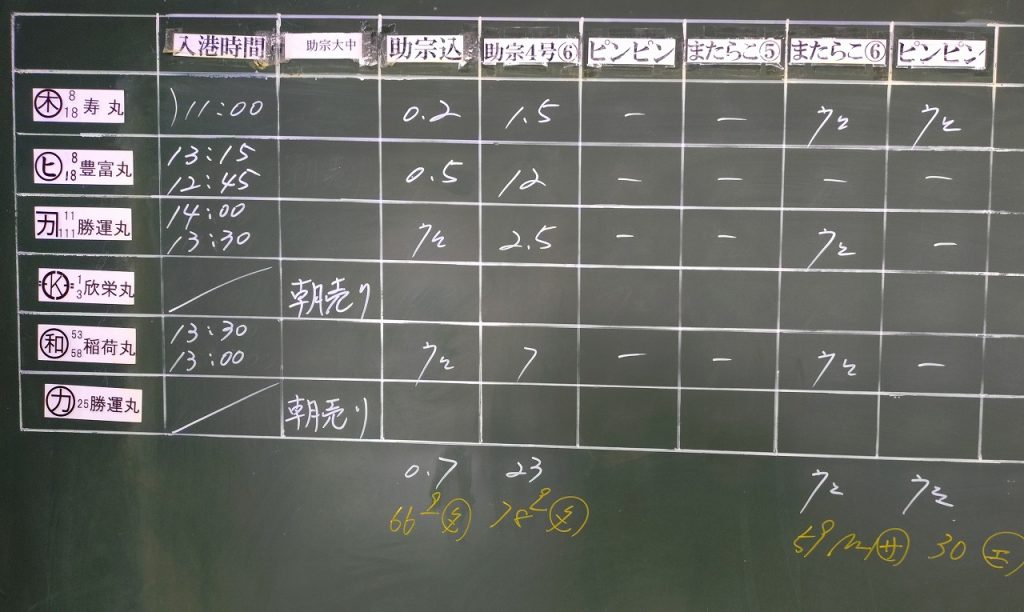 入港時間 助宗大中 助宗込 助宗4号⑥ ピンピン またらこ⑤ またらこ⑥ ピンピン
木 8 18 寿丸 11:00 0.2 1.5 ー ー
ヒ 8 18 豊富丸 13:15 12:45 0.5 12 ー ー ー ー
カ 11 111 勝運丸 14:00 13:30 2.5 ー ー ー
K 1 3 欣栄丸 朝売り
和 53 58 稲荷丸 13:30 13:00 7 ー ー ー
カ 25 勝運丸 朝売り
0.7 23
66 78 59 30